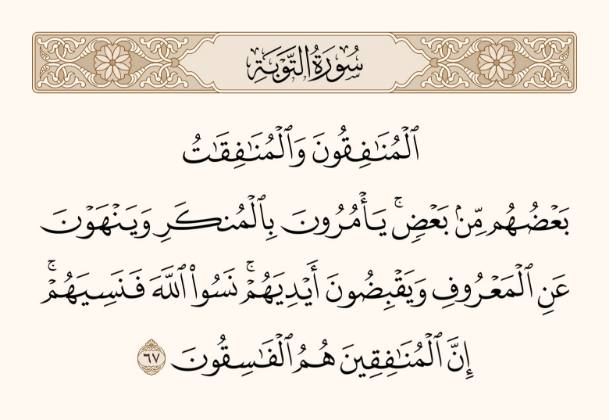 سُورَةُ التَّوْبَةِ
ٱلْمُنَٰفِقُونَ وَٱلْمُنَٰفِقَٰتُ
بَعْضُهُم مِّنۢ بَعْضٍۚ يَأْمُرُونَ بِٱلْمُنكَرِ وَيَنْهَوْنَ
عَنِ ٱلْمَعْرُوفِ وَيَقْبِضُونَ أَيْدِيَهُمْۚ نَسُوا۟ ٱللَّهَ فَنَسِيَهُمْۚ
إِنَّ ٱلْمُنَٰفِقِينَ هُمُ ٱلْفَٰسِقُونَ ٦٧